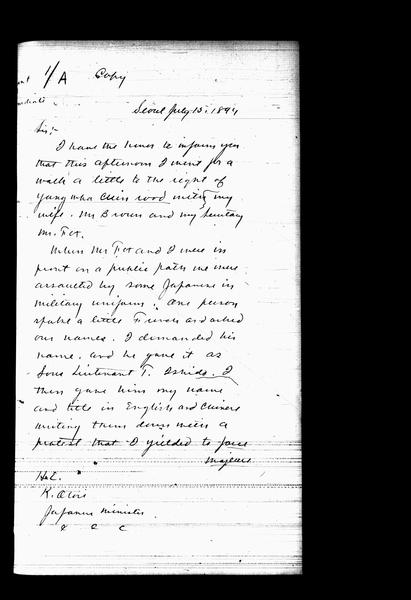 1/A Copy
Seoul July 15, 1894
Sir:-
I have the honor to inform you
that this afternoon I went for a
walk a little to the right of
Yang wha Chin road with my
wife. Mr Brown and my Secretary
Mr. Fox.
When Mr Fox and I were in
front on a public path we were
assaulted by some Japanese in
military uniform. One person
spoke a little French and asked
our names. I demanded his
name. and he gave it as
Sous Lieutenant T. I
then gave him my name
and title in English and Chinese
writing them down with a
protest that I yielded to force
majeure
H.E.
K. Otori
Japanese Minister
& c c